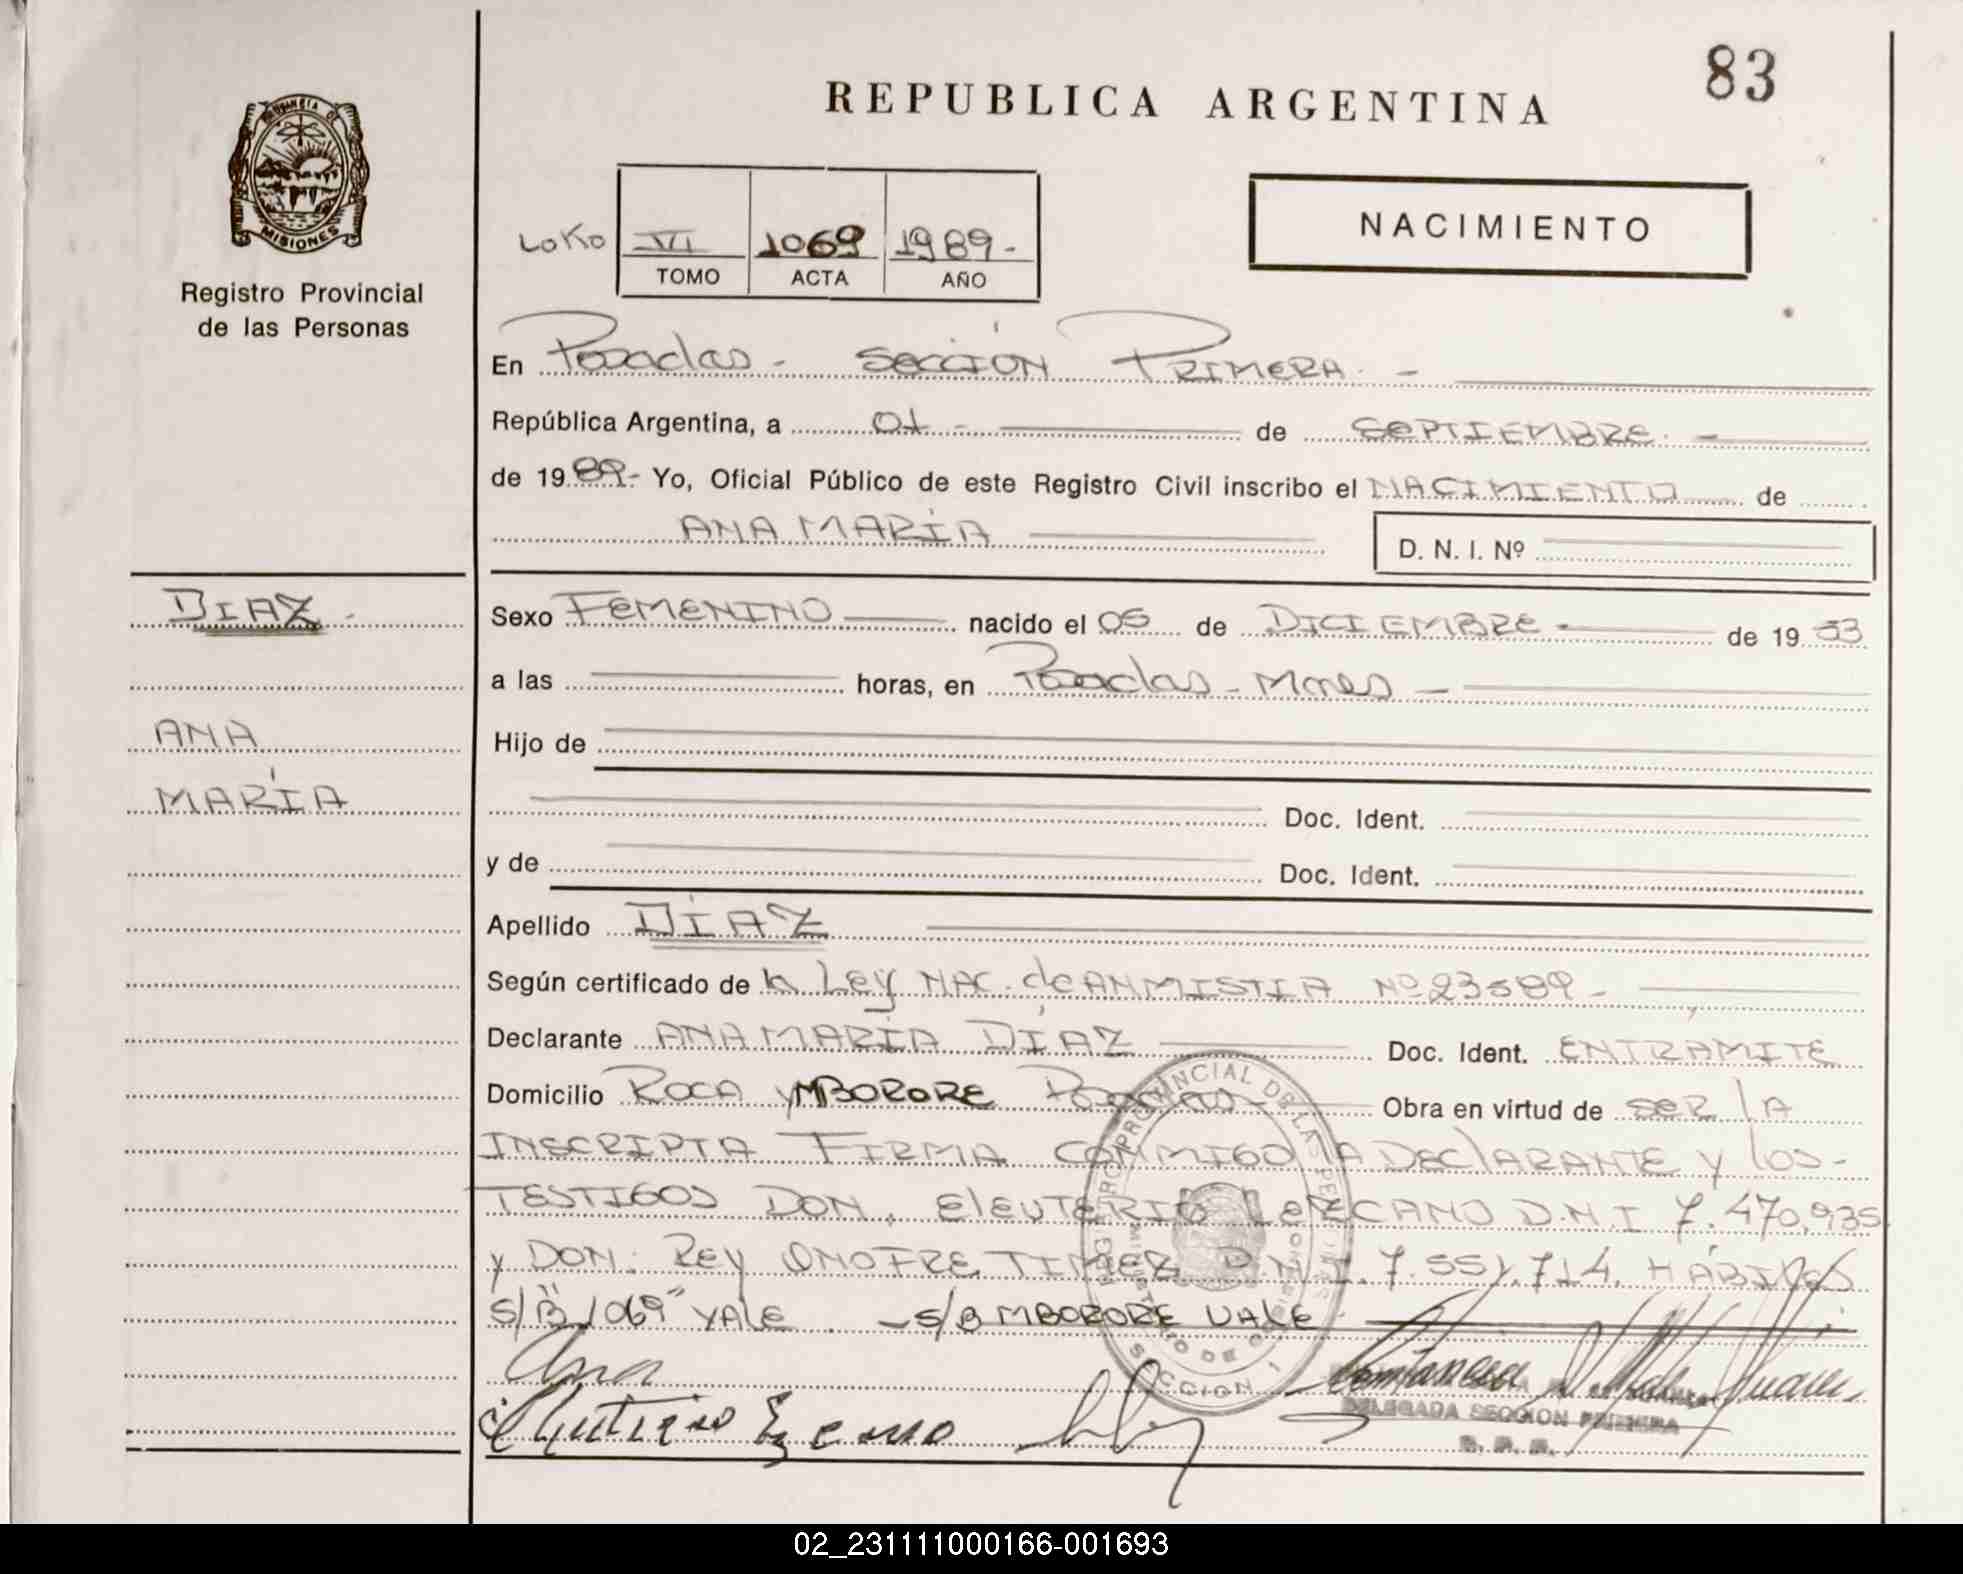 83
REPUBLICA ARGENTINA
PROVINCIA DE
MISIONES
Registro Provincial
de las Personas
NACIMIENTO
VI 1069 1989-
TOMO ACTA AÑO
En Posadas - SeccIÓN PRIMERA. -
República Argentina, a 01 - de SePTIEMBRE. -
de 1989- Yo, Oficial Público de este Registro Civil inscribo el NACIMIENTO de
ANA MARÍA D. N. I. Nº
DIAZ -
ANA
MARÍA
Sexo FeMENINO nacido el 05 de DICIEMBRE - de 1953
a las horas, en Posadas - Mnes -
Hijo de
Doc. Ident.
y de Doc. Ident.
Apellido DÍAZ
Según certificado de la Ley NAC. de ANMISTIA Nº 23589 -
Declarante ANA MARÍA DÍAZ Doc. Ident. ENTRAMITE
Domicilio ROCA y MBORORE Posadas - Obra en virtud de seR lA
INSCRIPTA FIRMA CONMIGO lA DEClARANTE y los-
TESTIGOS DON. EleUTERIO LEZCANO D.N.I 7.470.935
y DON: REY ONOFRE TIMEZ D.N.I. 7.551.714. HÁBILES
S/B "1069" VALE - S/B MBORORE VALE
REGISTRO PROVINCIAL DE LAS PERSONAS
SECCION 1
Ana
DELEGADA SECCION PRIMERA